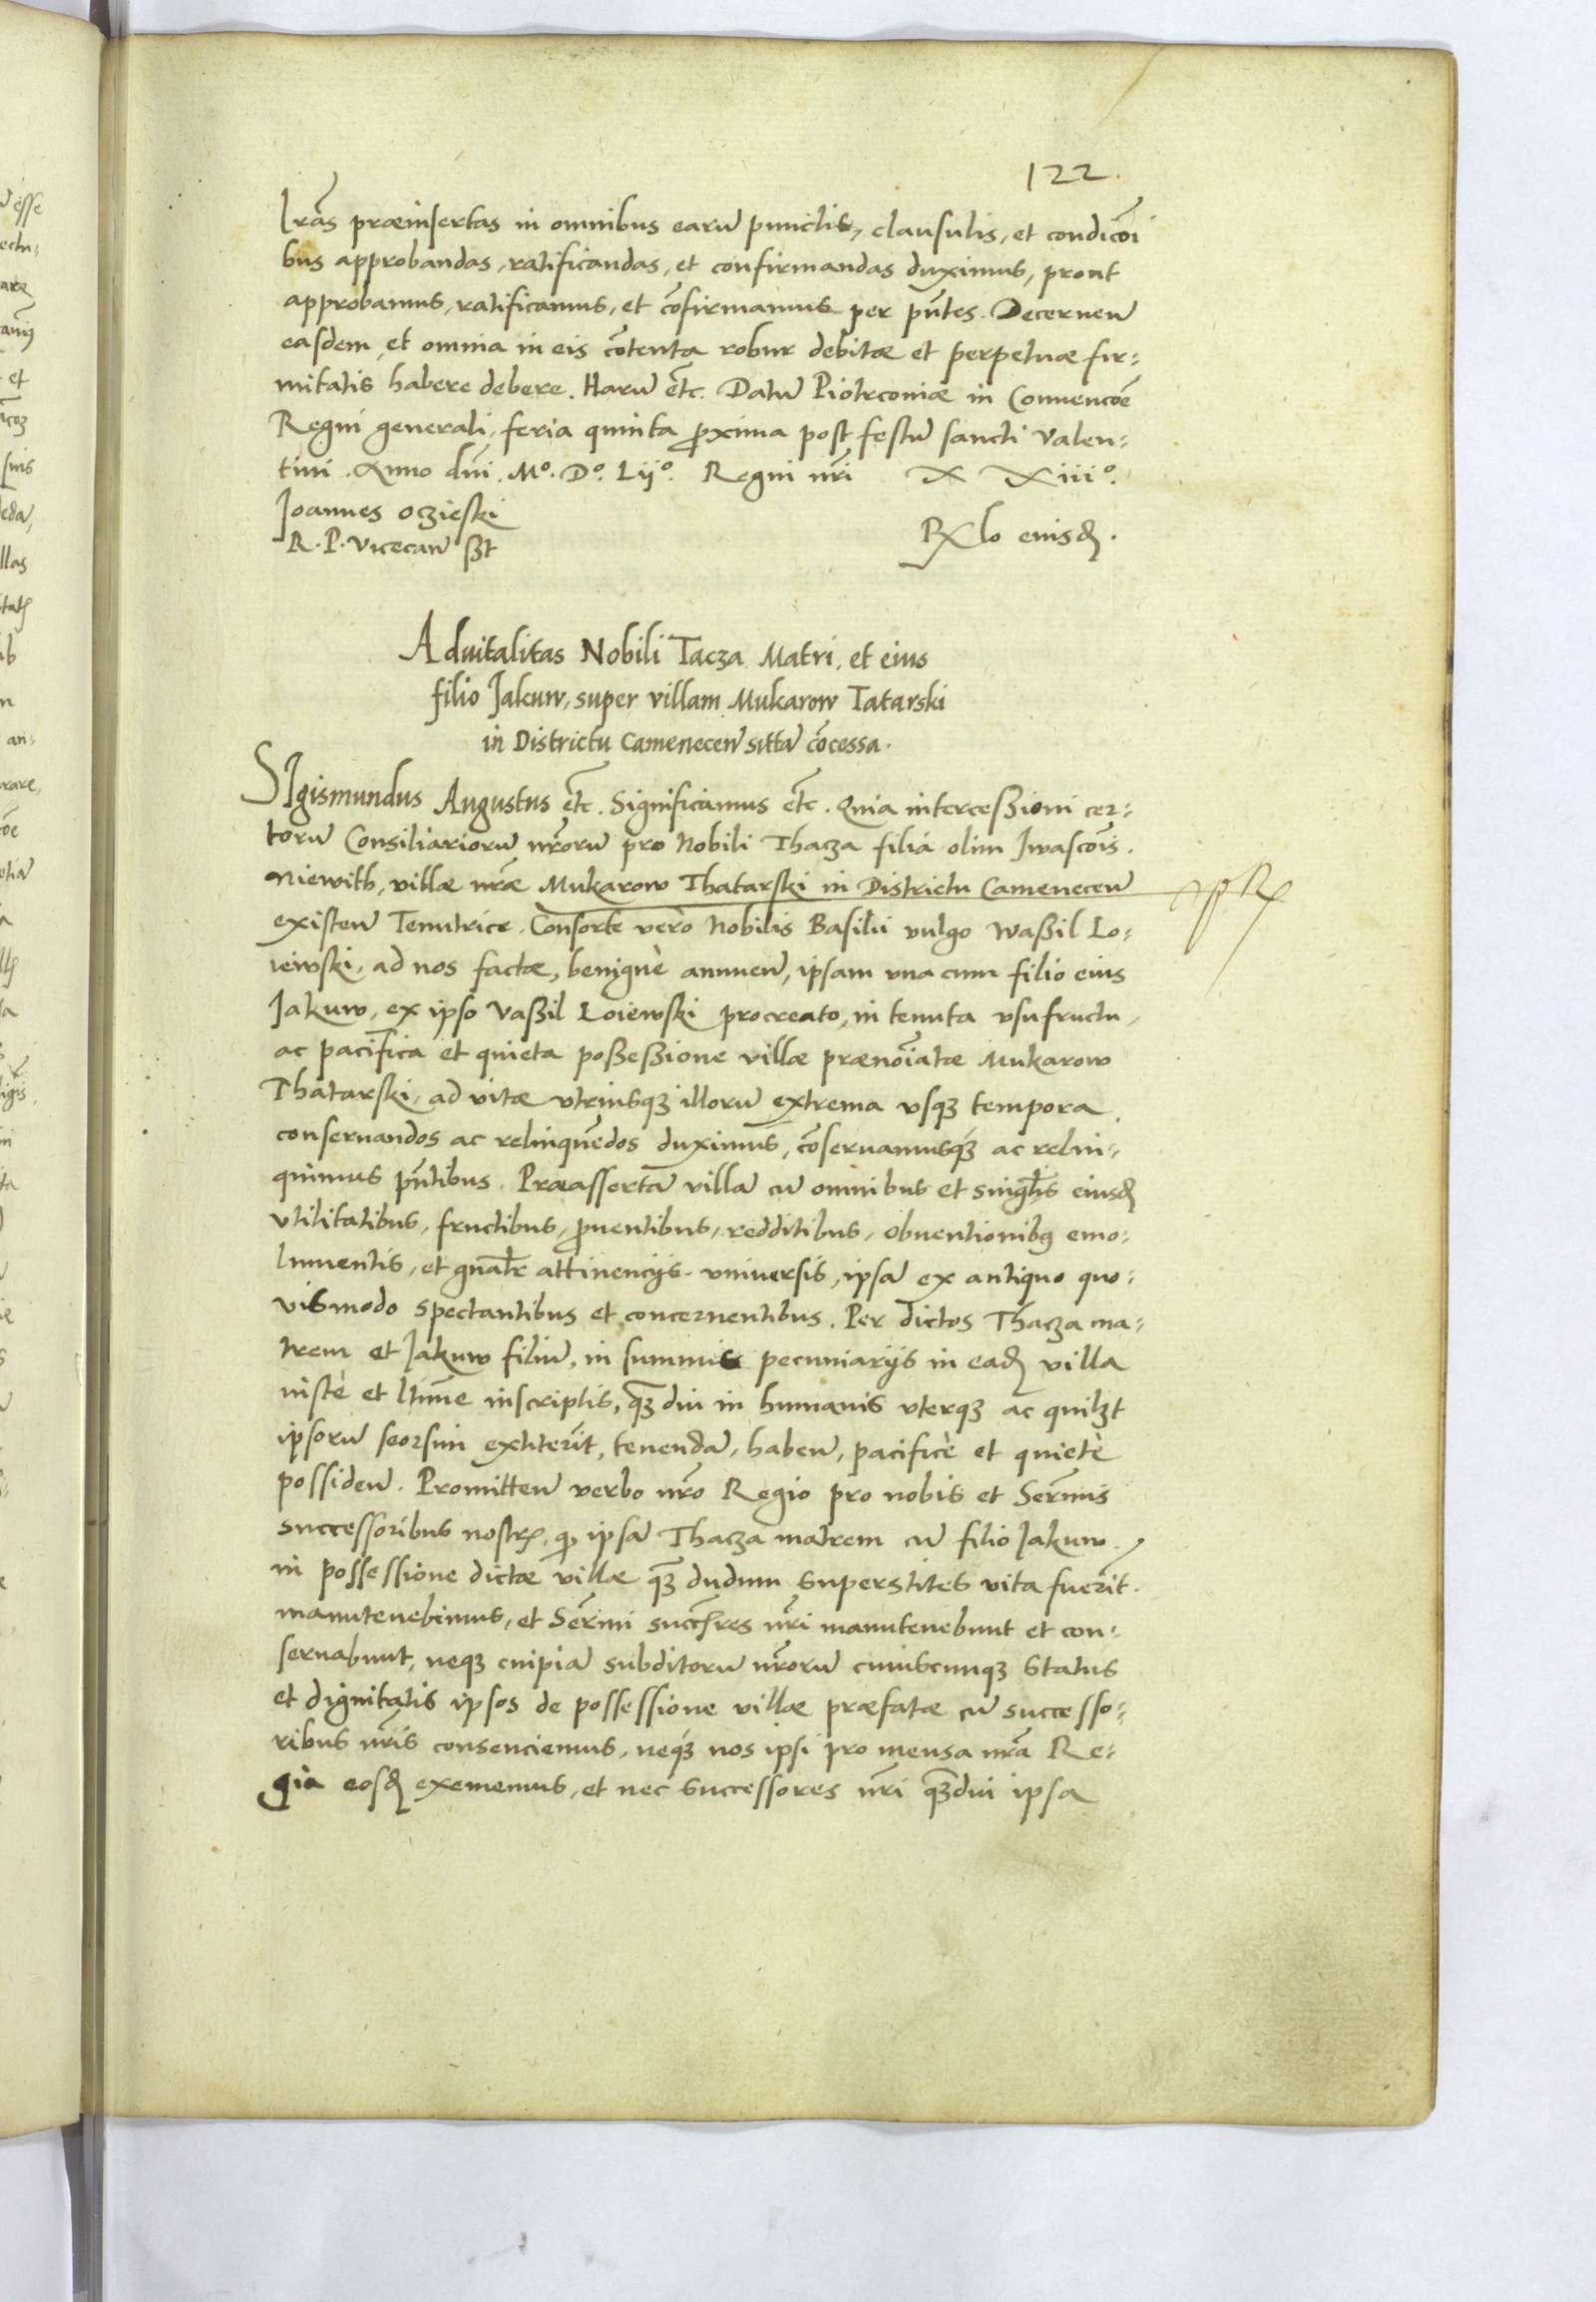 122.
lrãs præinsertas in omnibus earũ punctis, clausulis, et condicõi
bus approbandas, ratificandas, et confirmandas duximus, prout
approbamus, ratificamus, et cõfirmamus per pñtes. Decerneñ
easdem, et omnia in eis cõtenta robur debitæ et perpetuæ fir-
mitatis habere debere. Harũ etc̃. Datũ Piotrconiæ in Conuencõe
Regni generali, feria quinta proxima post festũ sancti Valen-
tini. Anno dñi. Mº. Dº. Lijº. Regni nr̃i XXiiiº.
Joannes Oczieski
R. P. Vicecañ sst
Rlo eiusd.
Aduitalitas Nobili Tacza Matri, et eius
filio Jakuw, super villam Mukarow Tatarski
in Districtu Cameneceñ sittã cõcessa.
SIgismundus Augustus etc̃. Significamus etc̃. Quia intercessioni cer-
torũ Consiliariorũ nr̃orũ pro Nobili Thacza filia olim Jwascois.
niewith, villæ nr̃æ Mukarow Thatarski in Districtu Cameneceñ
existeñ Tenutrice. Consorte verò Nobilis Basilii vulgo Wassil Lo-
iewski, ad nos factæ, benignè annueñ, ipsam vna cum filio eius
Jakuw, ex ipso Vassil Loiewski procreato, in tenuta vsufructu,
ac pacifica et quieta possessione villæ prænoĩatæ Mukarow
Thatarski, ad vitæ vtriusq3 illorũ extrema vsq3 tempora
conseruandos ac relinquẽdos duximus, cõseruamusq3 ac relin-
quimus pñtibus. Præassertã villã cũ omnibus et singlis eiusd
vtilitatibus, fructibus, prouentibus, redditibus, obuentionib9 emo-
lumentis, et gnalr attinencijs vniuersis, ipsã ex antiquo quo-
vismodo spectantibus et concernentibus. Per dictos Thacza ma-
trem et Jakuw filiũ, in summis pecuniarijs in ead villa
iustè et ltime inscriptis, q3 diu in humanis vterq3 ac quil3t
ipsorũ seorsim extiterit, tenendã, habeñ, pacificè et quietè
possideñ. Promitteñ verbo nr̃o Regio pro nobis et Serm̃is
successoribus nostr, q ipsã Thacza matrem cũ filio Jakuw
in possessione dictæ villæ q3 dudum superstites vita fuerit.
manutenebimus, et Serm̃i succr̃es nr̃i manutenebunt et con-
seruabunt, neq3 cuipiã subditorũ nr̃orũ cuiuscunq3 status
et dignitatis ipsos de possessione villæ præfatæ cũ successo-
ribus nr̃is consenciemus, neq3 nos ipsi pro mensa nr̃a Re-
gia eosd exememus, et nec successores nr̃i q3diu ipsa